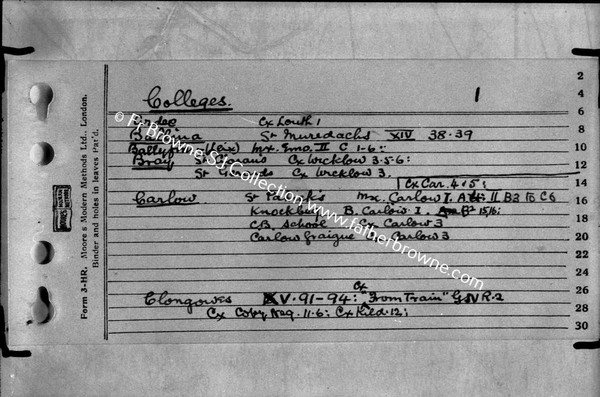 Colleges. 1
Ardee Cx Louth 1
Ballina St Muredachs XIV 38.39
Ballyfin (Leix) Mx. Emo. II C 1-6:
Bray Cx Wicklow 3.5-6:
St Cx Wicklow 3.
Cx Car. 4.5;
Carlow St Patrick's Mx. Carlow I. II B3 To C6
Knockbeg B. Carlow I. 15/16;
C.B. School Cx Carlow 3
Carlow Graigue Carlow 3
Clongowes XV. 91-94: Cx "From Train" GSVR.2
Cx Coby Neg. 11.6: Cx Kild.12;
2
4
6
8
10
12
14
16
18
20
22
24
26
28
30
Form J-HR. Moore's Modern Methods Ltd., London.
Binder and holes in leaves Pat'd.
© Fr Browne SJ Collection www.fatherbrowne.com